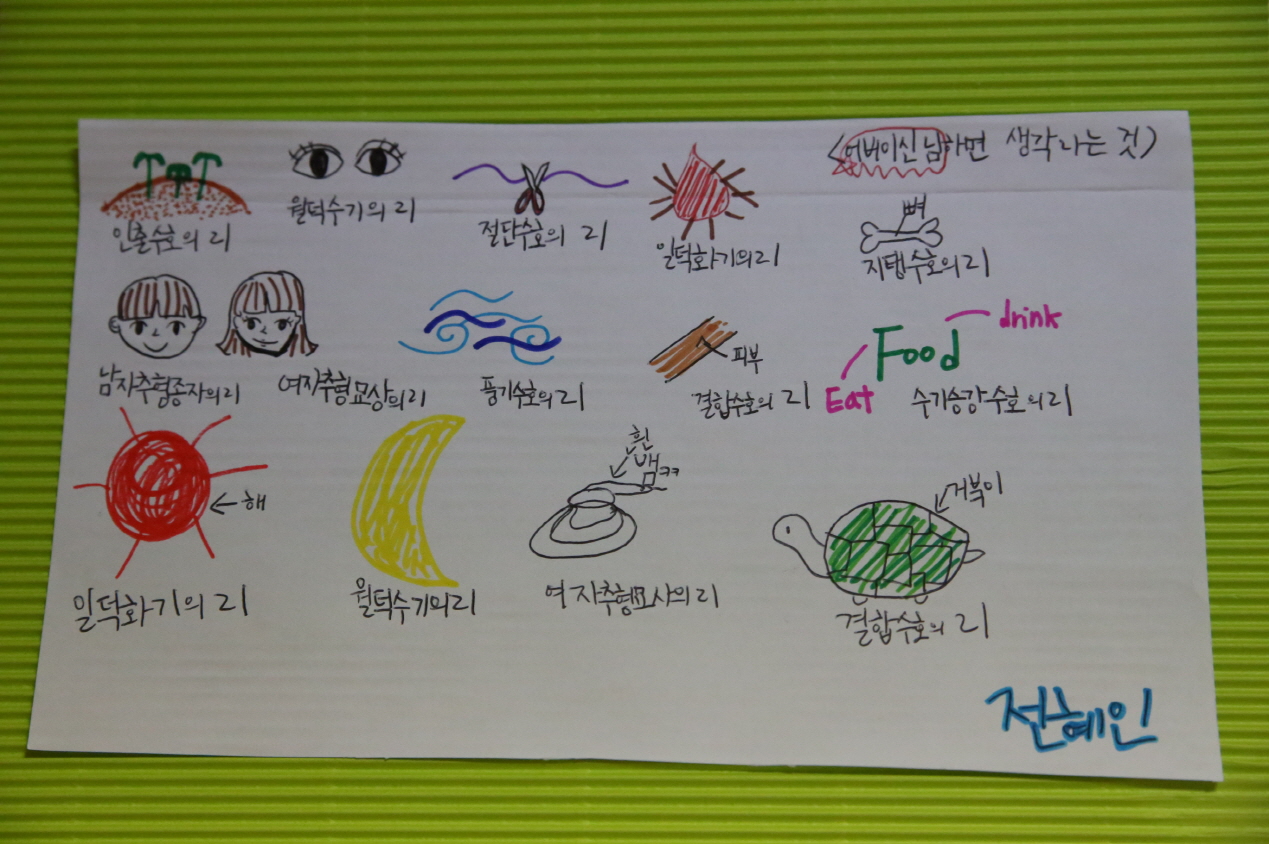 <어버이신 님하면 생각나는 것>
인출수호의 리
월덕수기의 리
절단수호의 리
일덕화기의 리
뼈
지탱수호의 리
남자추형종자의 리
여자추형묘상의 리
풍기수호의 리
피부
결합수호의 리
drink
Food
Eat
수기승강수호의 리
해
일덕화기의 리
월덕수기의 리
흰
뱀
ㅋㅋ
여자추형묘사의 리
거북이
결합수호의 리
전혜인